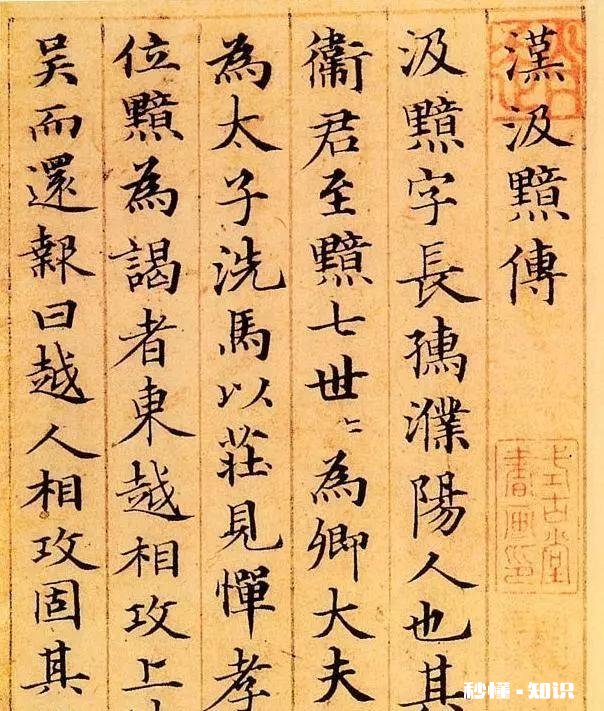 漢汲黯傳
汲黯字長孺濮陽人也其
衛君至黯七世〻為卿大夫
為太子洗馬以莊見憚孝
位黯為謁者東越相攻上
吳而還報曰越人相攻固其
式古堂
書畫印
秒懂·知识